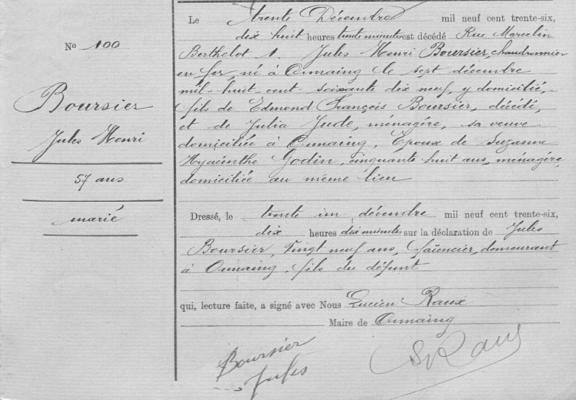 No 100
Boursier
Jules Henri
57 ans
marié
Le trente Décembre mil neuf cent trente-six,
dix huit heures trente minutes est décédé Rue Marcelin
Berthelot 1. Jules Henri Boursier, chaudronnier
en fer, né à Onnaing le sept décembre
mil huit cent soixante dix neuf, y domicilié,
fils de Edmond François Boursier, décédé,
et de Julia Jude, ménagère, sa veuve
domiciliée à Onnaing. Epoux de Suzanne
Hyacinthe Godin, cinquante huit ans, ménagère
domiciliée au même lieu
Dressé, le trente un décembre mil neuf cent trente-six,
dix heures dix minutes sur la déclaration de Jules
Boursier, Vingt neuf ans, faïencier, demeurant
à Onnaing. fils du défunt
qui, lecture faite, a signé avec Nous Lucien Raux
Maire de Onnaing
Boursier
Jules
Raux